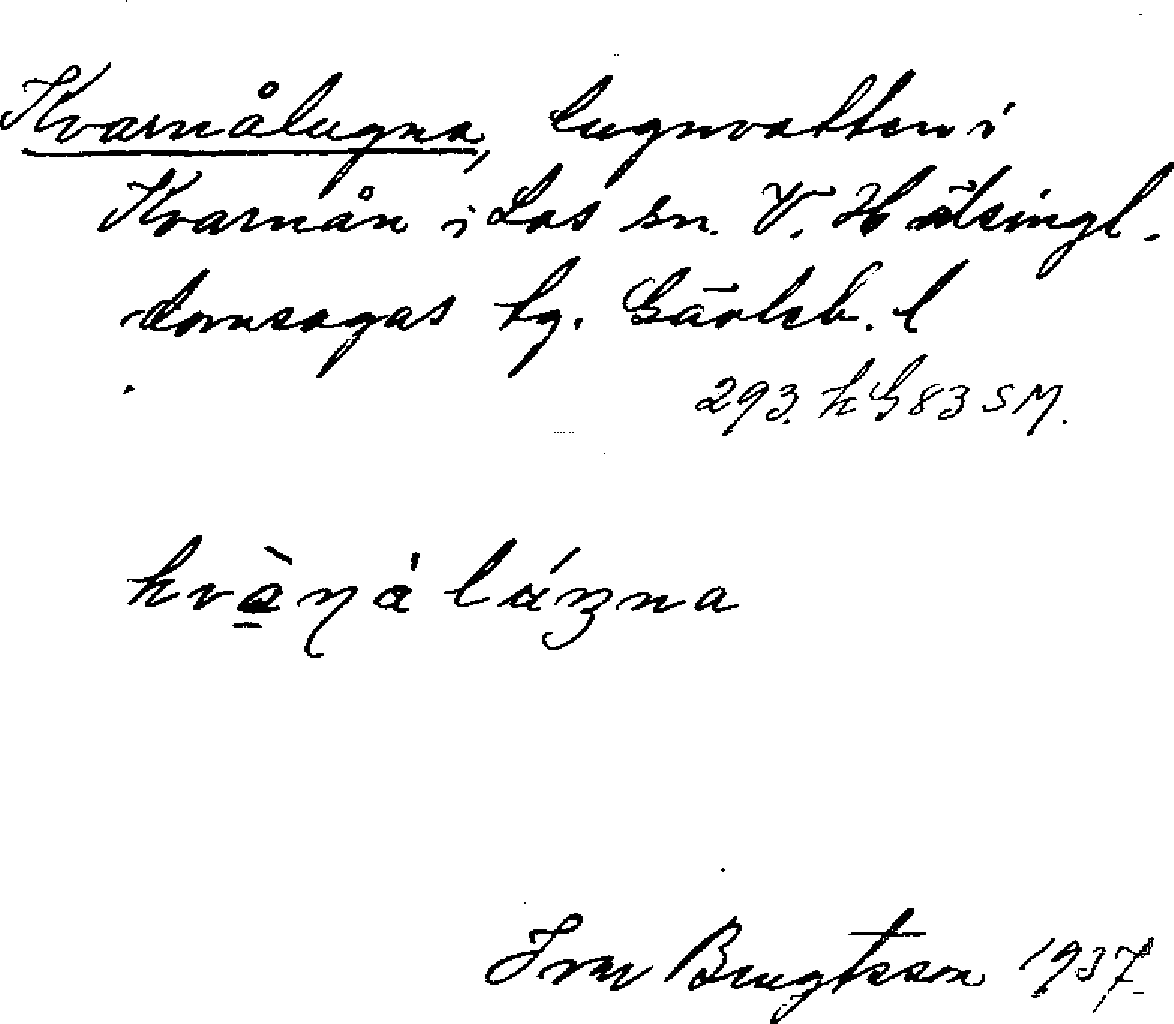 Kvarnålugna, lugnvatten i
Kvarnån i Los sn. V. Hälsingl.
domsagas tg. Gävleb. l
293. hG 83 SM.
kvạ̀ṇá láʒna
Ivar Bengtsson 1937